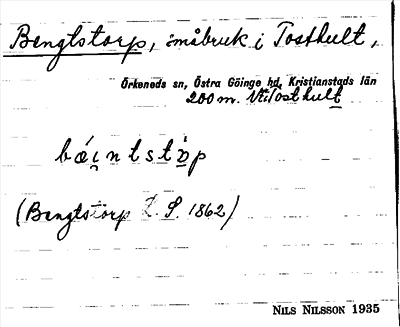 Bengtstorp, småbruk i Tosthult,
Örkeneds sn, Östra Göinge hd, Kristianstads län
200 m. Tosthult
bæi̯ntstɔp
(Bengtstorp L. S. 1862)
NILS NILSSON 1935